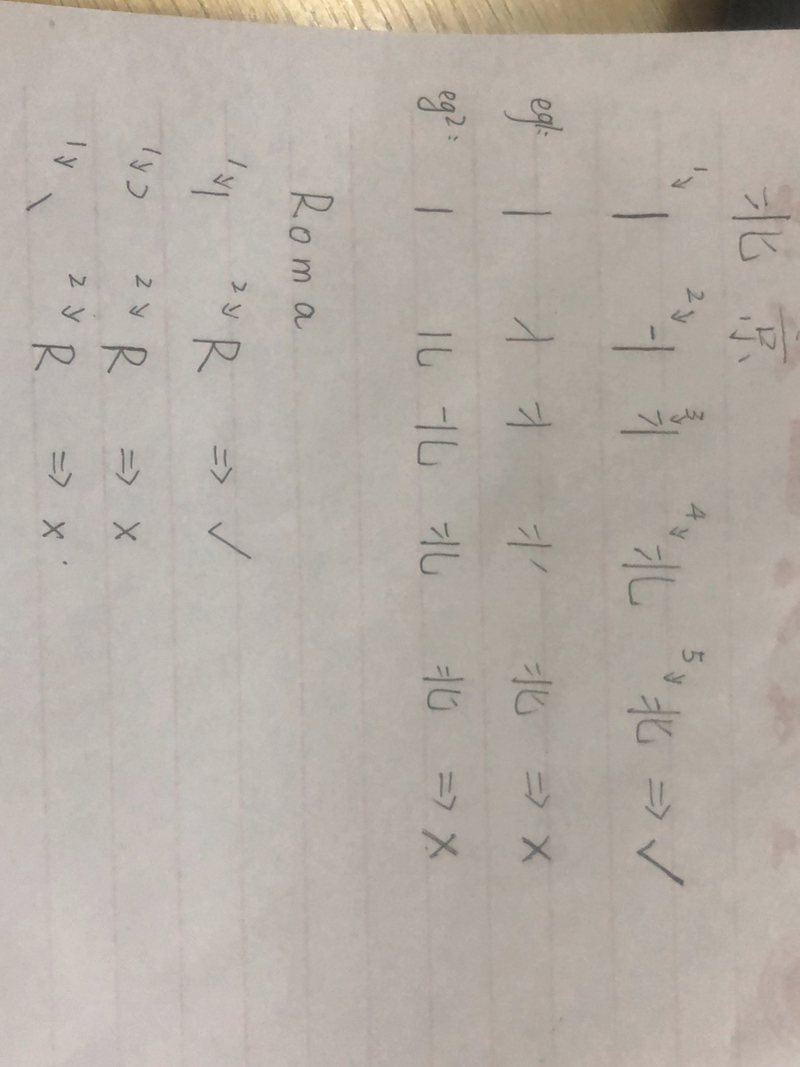 北京
1→ 2→ 3→ 4→ 5→ 北 ⇒ ✓
eg1: 北 ⇒ ×
eg2: 北 ⇒ ×
Roma
1→ 2→ R ⇒ ✓
1→ 2→ R ⇒ ×
1→ 2→ R ⇒ ×.